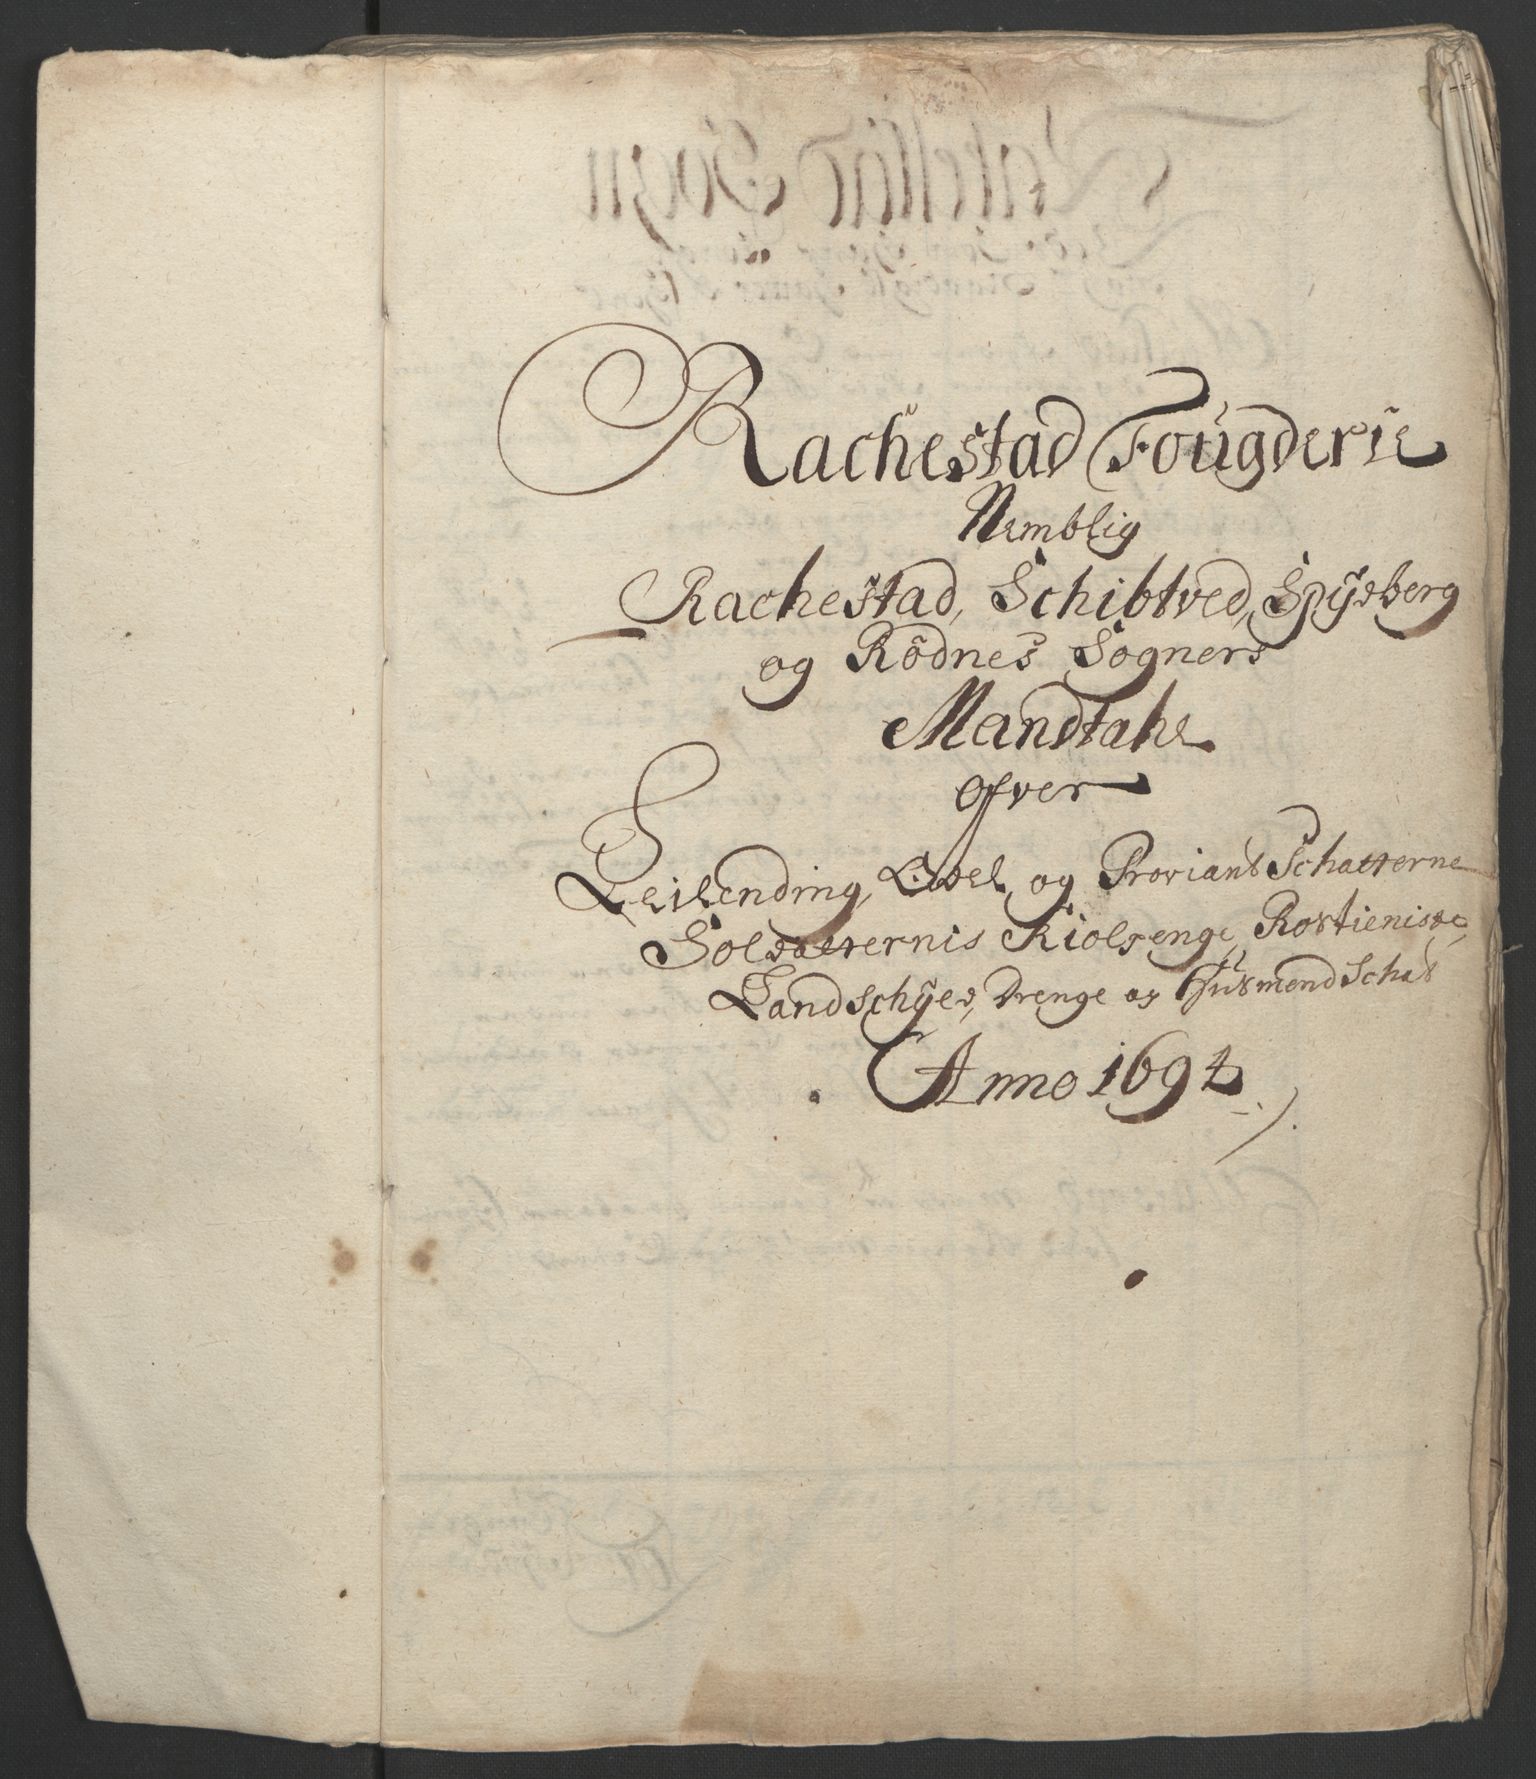 Rachestad Fougderie
Nemblig
Rachestad, Schibtved, Spydeberg
og Rödnes Sogners
Mandtahl
ofver
Leilending, Odel og Proviant Schatterne
Soldatternis Kiolpenge, Rostieniste,
Landschyld, Drenge og Husmend Schat
Anno 1694